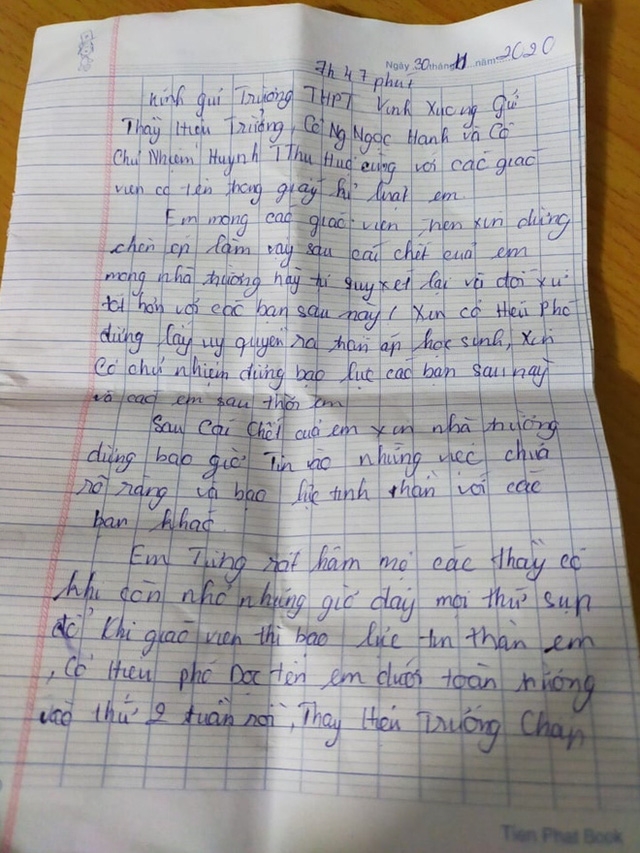 7h 47 phút
Ngày 30 tháng 11 năm 2020
Kính gửi Trường THPT Vinh Xương Gửi
Thầy Hiệu Trưởng, Cô Ng Ngọc Hanh và Cô
Chủ Nhiệm Huynh T Thu Huệ cùng với các giáo
viên có tên trong giấy kỉ luật em.
Em mong các giáo viên, nên xin dừng
chèn ép lắm vay sau cái chết của em
mong nhà trường hãy quyết lại và đối xử
tốt hơn với các bạn sau này! Xin cô Hiệu Phó
đừng lấy uy quyền ra trấn áp học sinh, xin
Cô chủ nhiệm đừng bạo lực các bạn sau này
và các em sau thời em
Sau Cái Chết của em xin nhà trường
đừng bao giờ Tin vào những việc chưa
rõ ràng và bạo lực tinh thần với các
bạn khác.
Em Từng rất hâm mộ các thầy cô
khi còn nhỏ nhưng giờ đây mọi thứ sụp
đổ Khi giáo viên thì bạo lực tin thần em
, Cô Hiệu phó Đọc tên em dưới toàn trường
vào thứ 2 tuần rồi, Thầy Hiệu Trưởng Chan
Tien Phat Book